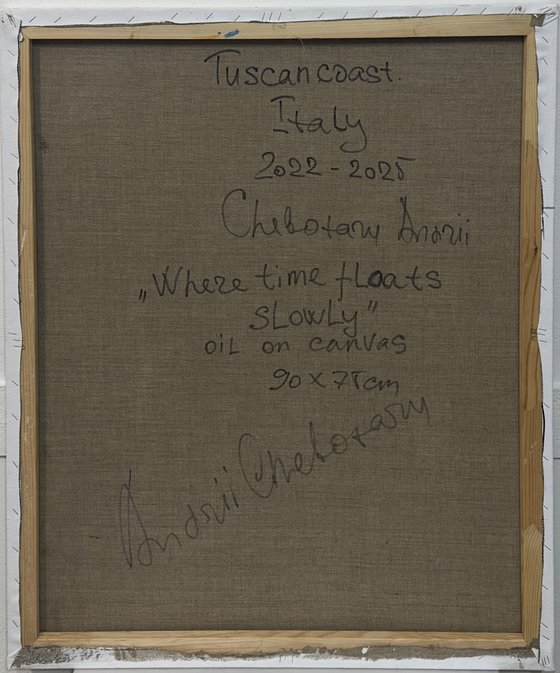 Tuscan coast.
Italy
2022 - 2025
Chebotaru Andrii
„Where time floats
slowly"
oil on canvas
90 x 75 cm
Andrii Chebotaru